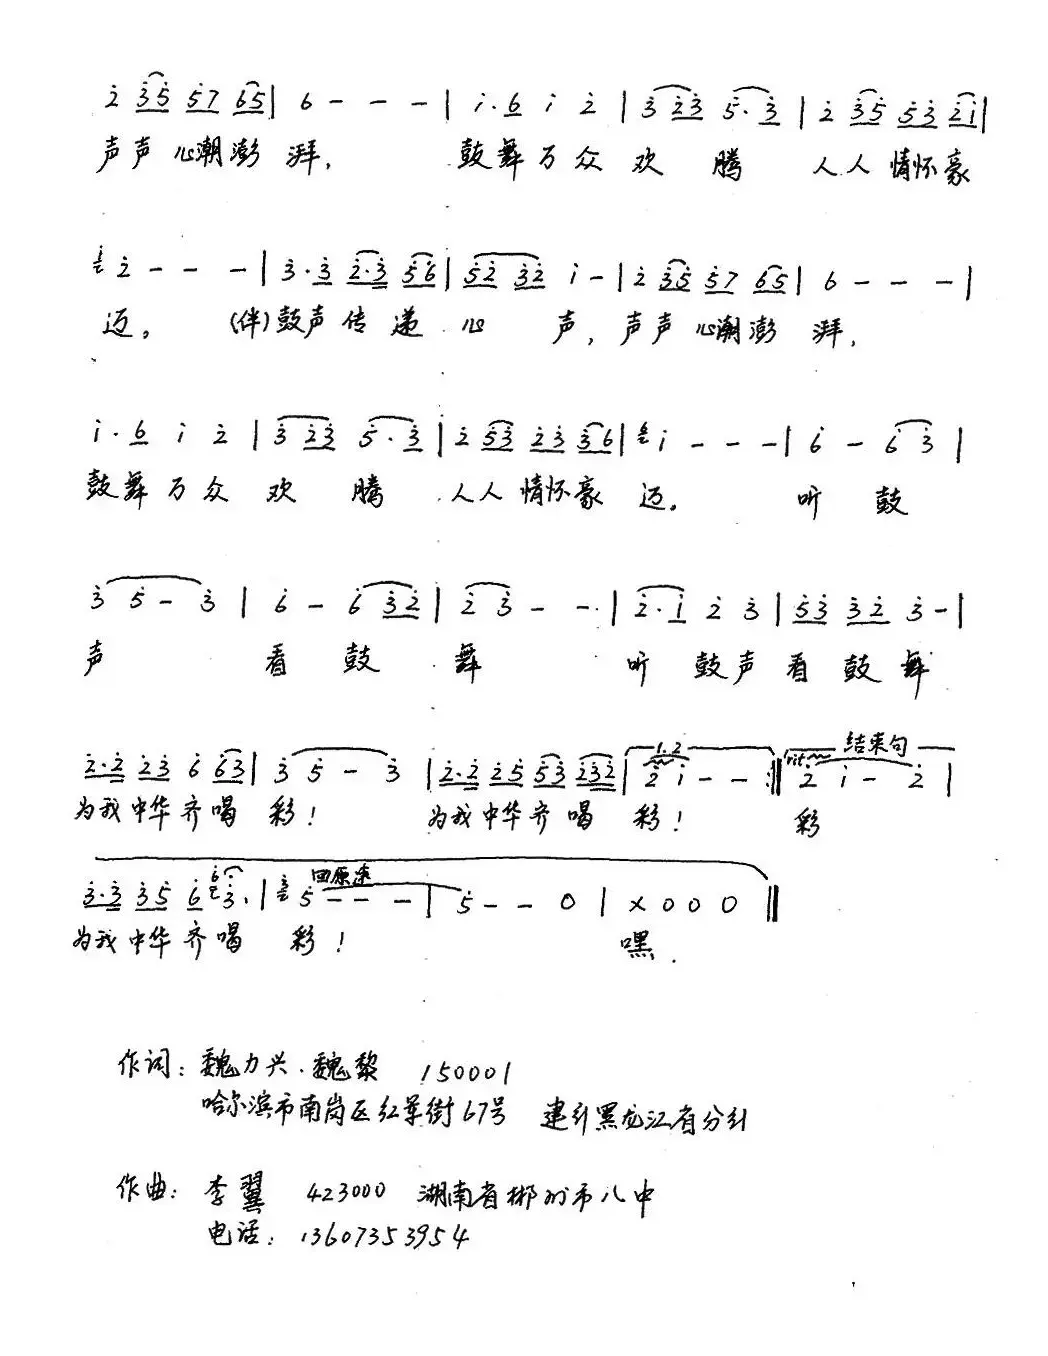 2 35 57 65 | 6 - - - | i. 6 i 2 | 3 23 5. 3 | 2 35 53 2i |
声声心潮澎湃, 鼓舞万众欢腾 人人情怀豪
i 2 - - - | 3. 3 2.3 56 | 52 32 i - | 2 35 57 65 | 6 - - - |
迈。 (伴)鼓声传递心声,声声心潮澎湃,
i. 6 i 2 | 3 23 5. 3 | 2 53 23 36 | 6 i - - - | 6 - 6 3 |
鼓舞万众欢腾 人人情怀豪迈。 听鼓
3 5 - 3 | 6 - 6 32 | 2 3 - - | 2. i 2 3 | 53 32 3 - |
声 看鼓舞 听鼓声看鼓舞
1.2 rit 结束句
2.2 23 6 63 | 3 5 - 3 | 2.2 25 53 232 | 2 i - - :‖ 2 i - 2 |
为我中华齐喝彩! 为我中华齐喝彩! 彩
回原速
3.3 35 6 6 3. | 3 5 - - - | 5 - - 0 | X 0 0 0 ‖
为我中华齐喝彩! 嘿.
作词: 魏力兴.魏黎 150001
哈尔滨市南岗区红军街67号 建行黑龙江省分行
作曲: 李翼 423000 湖南省郴州市八中
电话: 13607353954